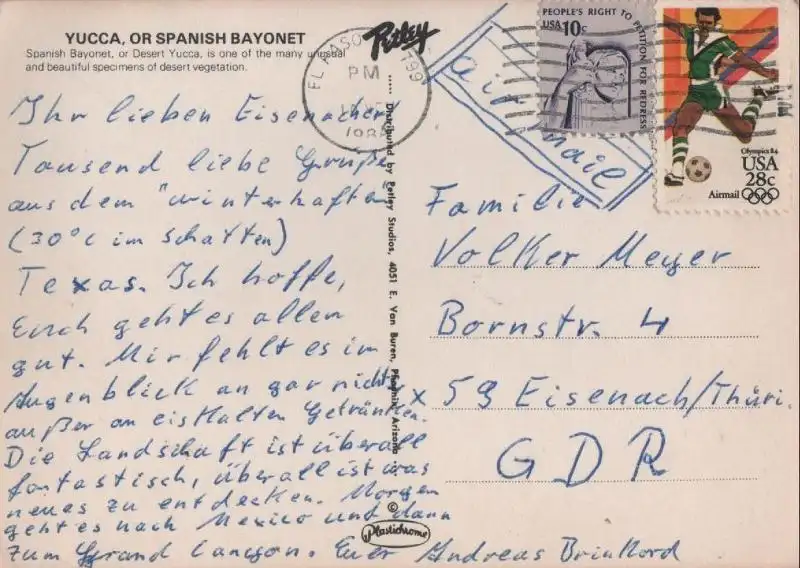 YUCCA, OR SPANISH BAYONET
Spanish Bayonet, or Desert Yucca, is one of the many unusual
and beautiful specimens of desert vegetation.
Petley
EL PASO
799
PM
PEOPLE'S RIGHT TO PETITION FOR REDRESS
USA 10c
Olympics 84
USA
28c
Airmail
air mail
Ihr lieben Eisenacher!
Tausend liebe Grüße
aus dem "winterhaften"
(30°C im Schatten)
Texas. Ich hoffe,
Euch geht es allen
gut. Mir fehlt es im
Augenblick an gar nichts,
außer an eiskalten Getränken.
Die Landschaft ist überall
fantastisch, überall ist was
neues zu entdecken. Morgen
geht es nach Mexico und dann
zum Grand Canyon. Euer Andreas
..... Distributed by Petley Studios, 4051 E. Van Buren, Phoenix, Arizona .....
©
Plastichrome
Familie
Volker Meyer
Bornstr. 4
x 59 Eisenach/Thüri.
GDR